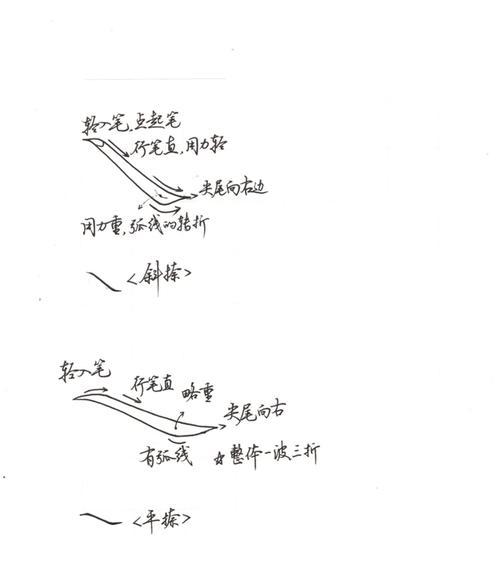 轻入笔,点起笔
行笔直,用力轻
尖尾向右边
用力重,弧线的转折
<斜捺>
轻入笔
行笔直
略重
尖尾向右
有弧线
☆整体一波三折
<平捺>